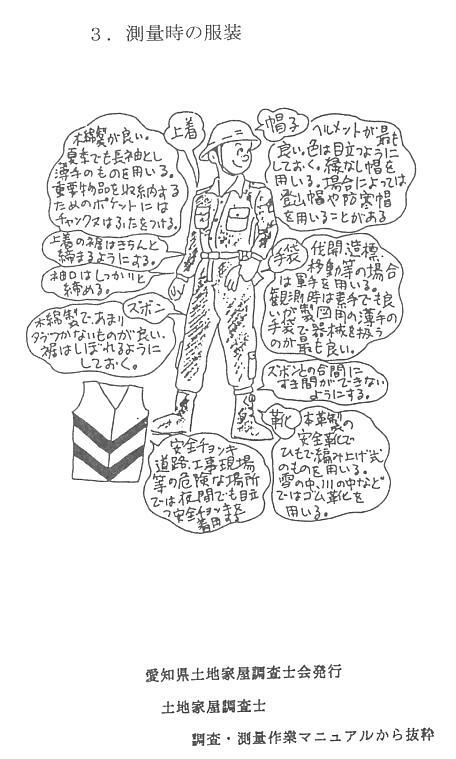 3．測量時の服装
上着
木綿製が良い。
夏季でも長袖とし
薄手のものを用いる。
重要物品を収納する
ためのポケットには
チャックスはふたをつける。
上着の裾はきちんと
締まるようにする。
袖口はしっかりと
締める。
ズボン
木綿製で、あまり
ダブつかないものが良い。
裾はしぼれるように
しておく。
帽子
ヘルメットが最も
良い。色は目立つように
しておく。縁なし帽を
用いる。場合によっては
登山帽や防寒帽
を用いることがある
手袋
伐開、造標、
移動等の場合
は軍手を用いる。
観測時は素手でも良
いが製図用の薄手の
手袋で器械を扱う
のが最も良い。
ズボンとの合間に
すき間ができない
ようにする。
靴
本革製の
安全靴で
ひもで編み上げ式
のものを用いる。
雪の中、川の中など
ではゴム靴を
用いる。
安全チョッキ
道路、工事現場
等の危険な場所
では夜間でも目立
つ安全チョッキを
着用する
愛知県土地家屋調査士会発行
土地家屋調査士
調査・測量作業マニュアルから抜粋